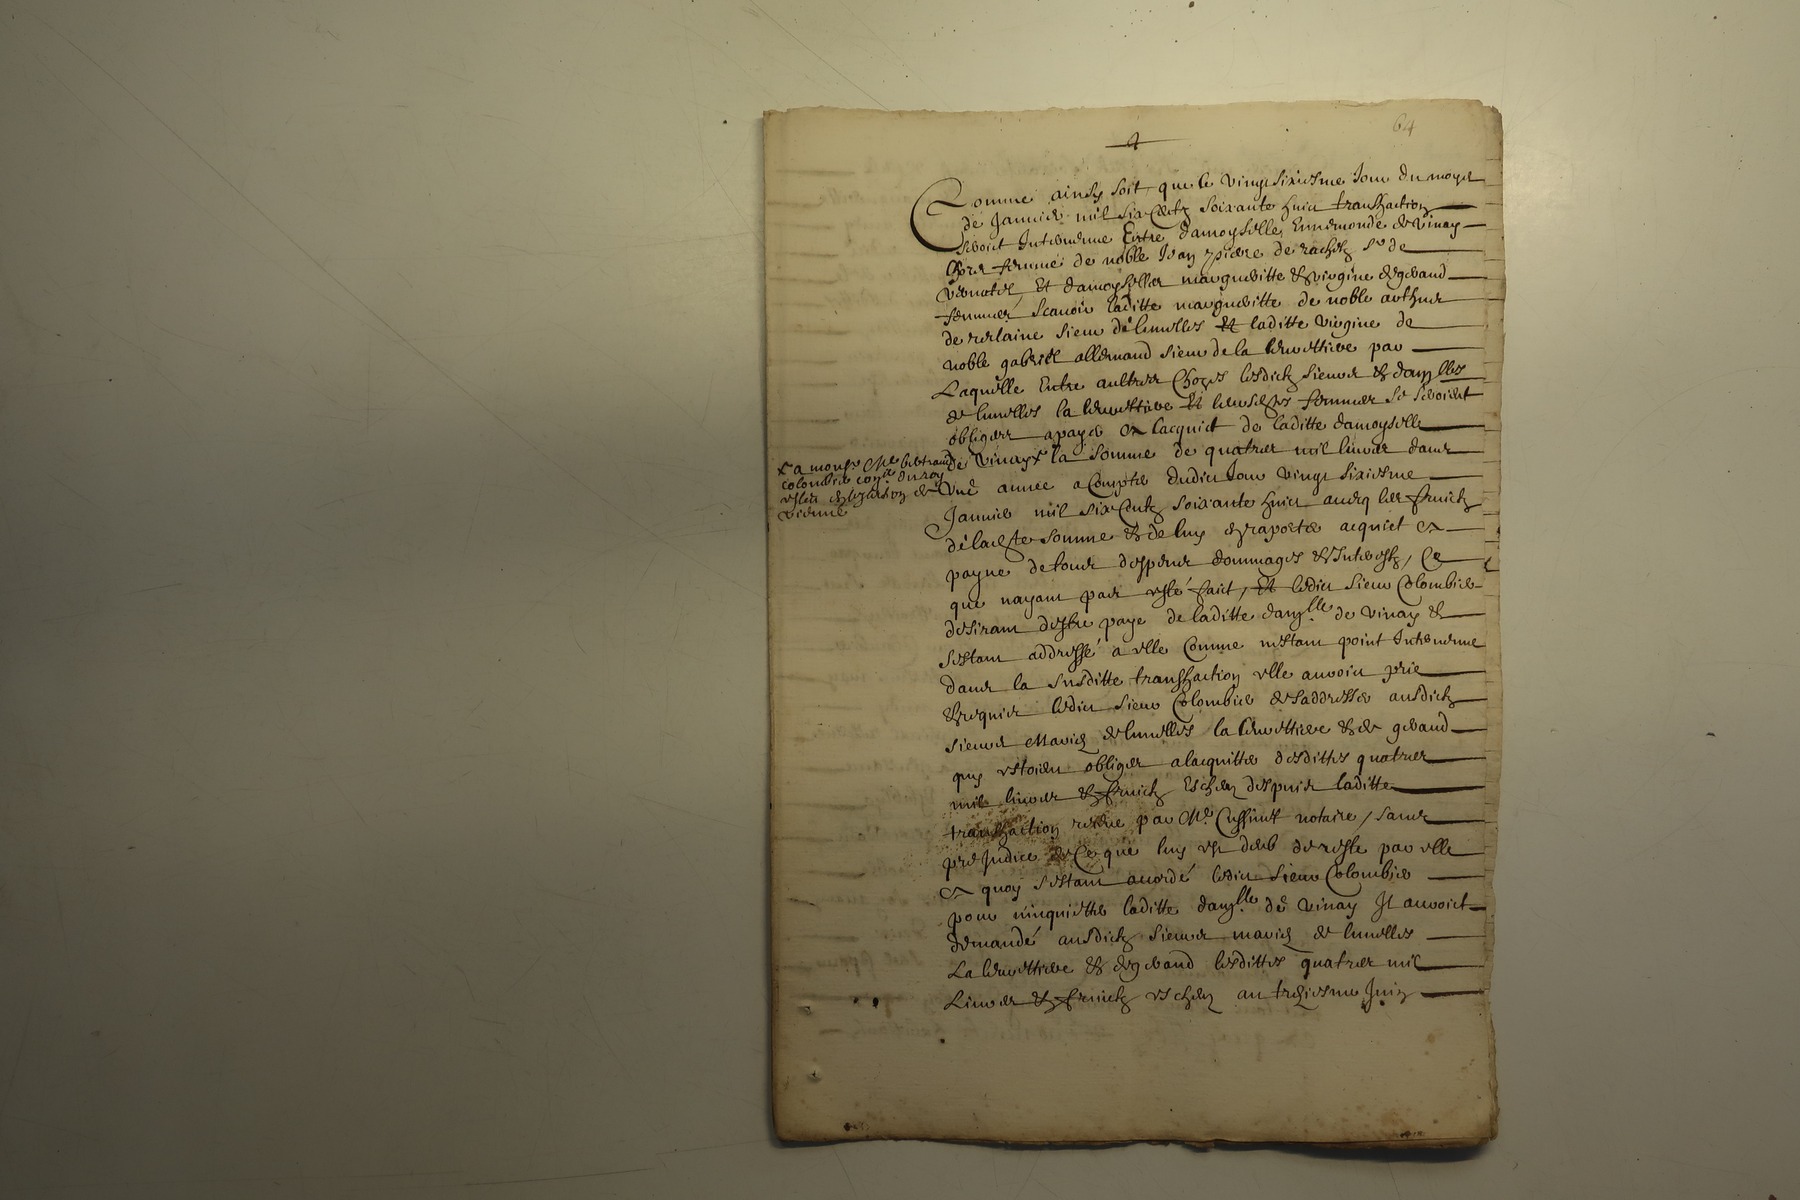 64
Comme ainsy soit que le vingt sixiesme Jour du moys
de Janvier mil six Centz soixante huict transhaction
seroict Intervenue Entre damoyselle Ennemonde de Vinay
femme de noble Jean pierre de rachetz Sr de
vernatel, Et damoyselles margueritte & virgine de
femmes scavoir laditte margueritte de noble arthur
de sieur de lunelles Et laditte virgine de
noble gabriel allemand sieur de la par
Laquelle Entre aultres Choses lesdictz sieurs & damlles
de lunelles la Et leursdittes femmes se seroient
obligees a payer En lacquict de laditte damoyselle
de Vinay x la somme de quatre mil livres dans
x a monsr Me bertrand
colombier conr du roy
de
vienne
une annee a Compter dudict Jour vingt sixiesme
Janvier mil six Centz soixante huict avecq les fruictz
de laditte somme & de luy en raporter acquict En
payne de tous despens dommages & Interestz, Ce
que nayant pas esté faict, Et ledict sieur Colombier
desirant destre payé de laditte damlle de Vinay &
sestant addressé a elle Comme nestant point Intervenue
dans la susditte transhaction elle auroict prié
& requis ledict sieur Colombier de saddresser ausdictz
sieurs Maries de lunelles la & de
quy estoient obliges a lacquitter desdittes quatre
mil livres & fruictz Escheus despuis laditte
transhaction receue par Me notaire, sans
prejudice de Ce que luy est deub de reste par elle
En quoy sestant acordé ledict sieur Colombier
pour ninquietter laditte damlle de Vinay Il auroict
demandé ausdictz sieurs maries de lunelles
La & de lesdittes quatre mil
Livres & fruictz escheus au treziesme Juin